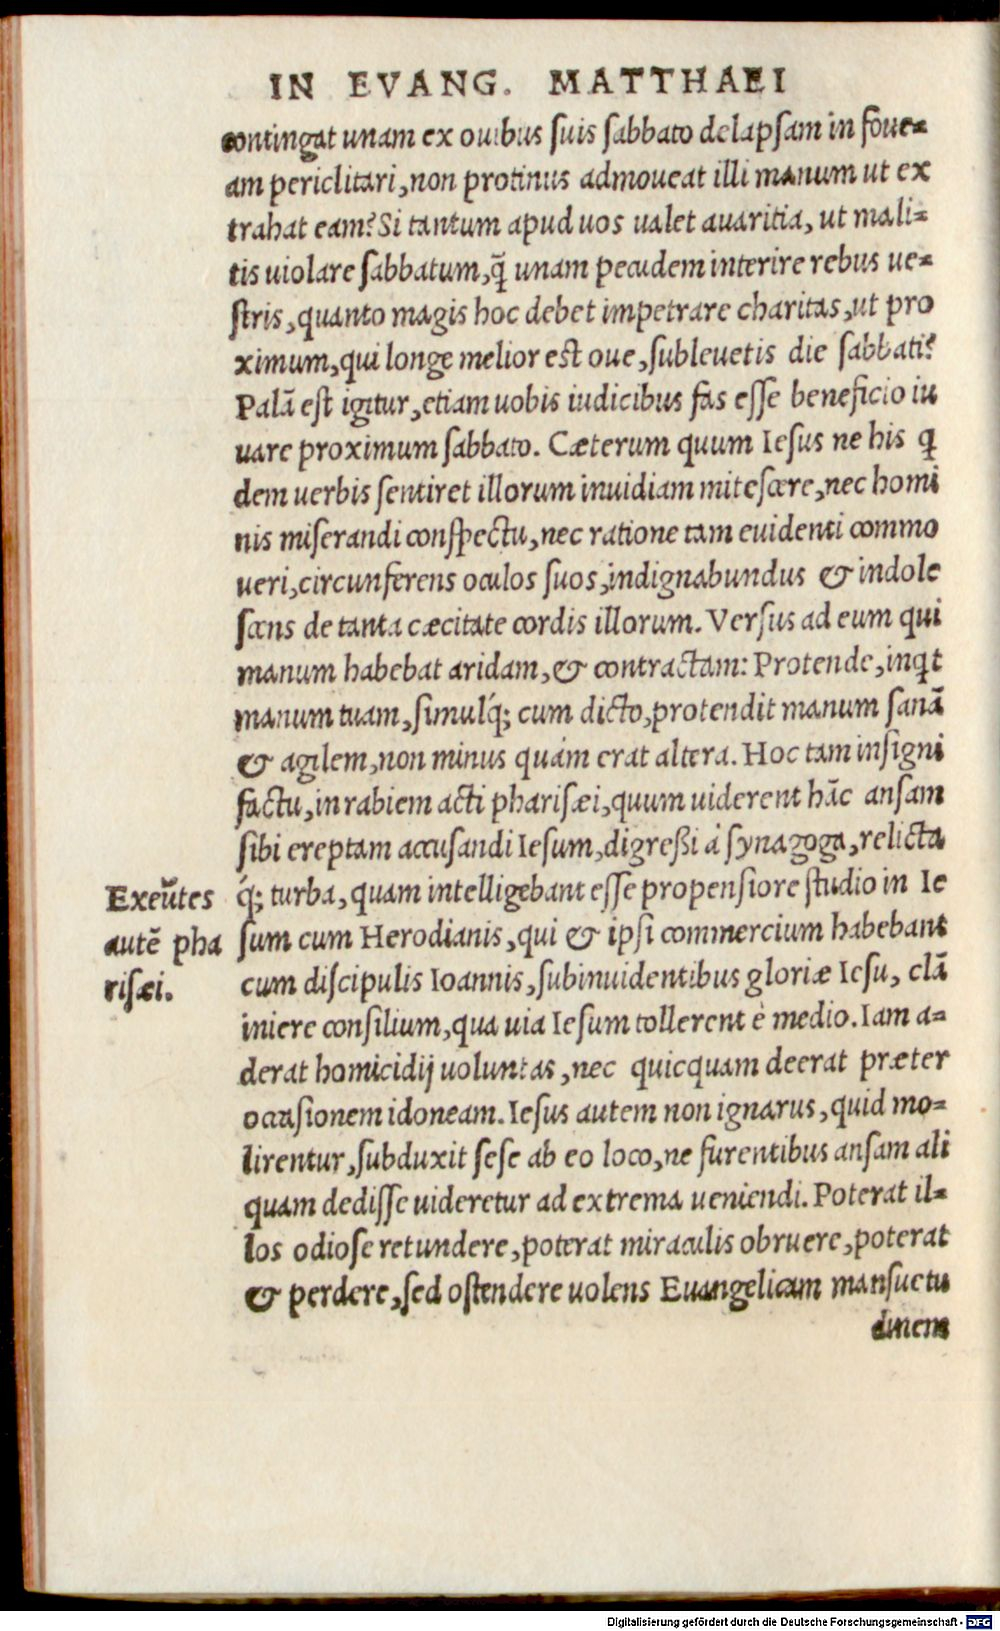 IN EVANG. MATTHAEI
contingat unam ex ouibus suis sabbato delapsam in foue=
am periclitari, non protinus admoueat illi manum ut ex
trahat eam? Si tantum apud uos ualet auaritia, ut mali=
tis uiolare sabbatum, q̃ unam pecudem interire rebus ue=
stris, quanto magis hoc debet impetrare charitas, ut pro
ximum, qui longe melior est oue, subleuetis die sabbati?
Palã est igitur, etiam uobis iudicibus fas esse beneficio iu
uare proximum sabbato. Cæterum quum Iesus ne his q̃
dem uerbis sentiret illorum inuidiam mitescere, nec homi
nis miserandi conspectu, nec ratione tam euidenti commo
ueri, circunferens oculos suos, indignabundus & indole
scens de tanta cæcitate cordis illorum. Versus ad eum qui
manum habebat aridam, & contractam: Protende, inq̃t
manum tuam, simulq́; cum dicto, protendit manum sanã
& agilem, non minus quàm erat altera. Hoc tam insigni
factu, in rabiem acti pharisæi, quum uiderent hãc ansam
sibi ereptam accusandi Iesum, digreßi à synagoga, relicta
q́; turba, quam intelligebant esse propensiore studio in Ie
sum cum Herodianis, qui & ipsi commercium habebant
cum discipulis Ioannis, subinuidentibus gloriæ Iesu, clã
iniere consilium, qua uia Iesum tollerent è medio. Iam a=
derat homicidij uoluntas, nec quicquam deerat præter
occasionem idoneam. Iesus autem non ignarus, quid mo=
lirentur, subduxit sese ab eo loco, ne furentibus ansam ali
quam dedisse uideretur ad extrema ueniendi. Poterat il=
los odiose retundere, poterat miraculis obruere, poterat
& perdere, sed ostendere uolens Euangelicam mansuetu
dinem
Exeũtes
autẽ pha
risæi.
Digitalisierung gefördert durch die Deutsche Forschungsgemeinschaft - DFG